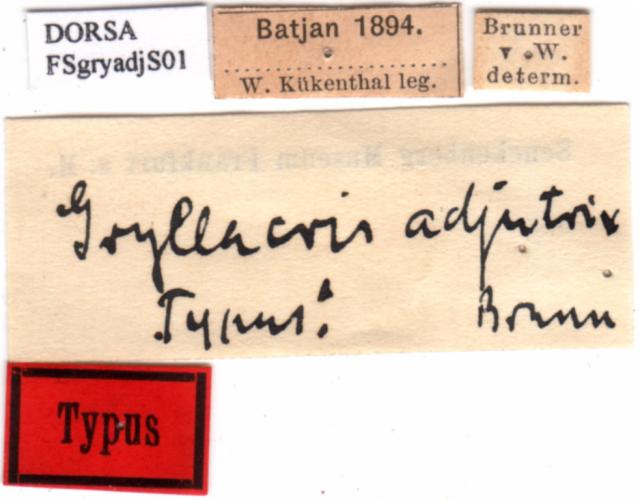 DORSA
FSgryadjS01
Batjan 1894.
W. Kükenthal leg.
Brunner
v. W.
determ.
Senckenberg Museum Frankfurt a. M.
Gryllacris adjutrix
Typus! Brunn
Typus